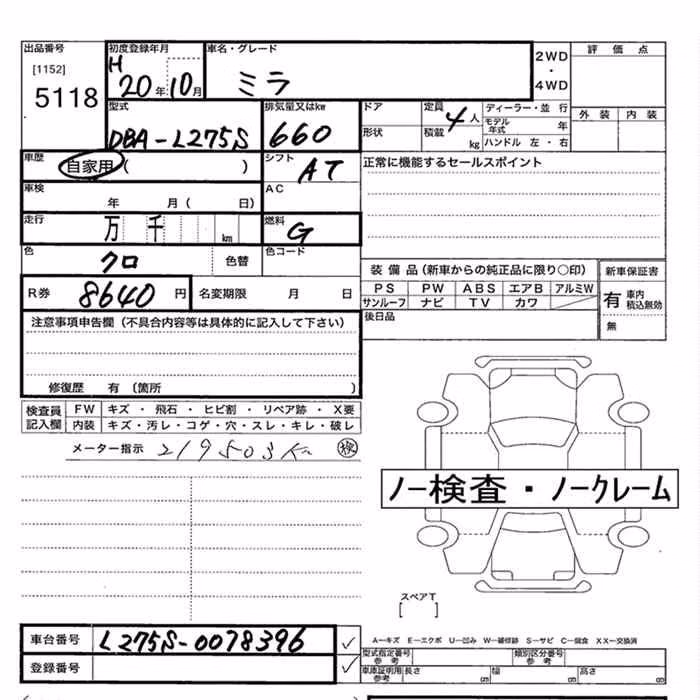 出品番号
[1152]
5118
初度登録年月
H
20年10月
車名・グレード
ミラ
2WD
・
4WD
評価点
外装 内装
型式
DBA-L275S
排気量又はkw
660
ドア
形状
定員 4人
積載 kg
ディーラー・並行
モデル年式 年
ハンドル 左・右
車歴
自家用( )
シフト
AT
正常に機能するセールスポイント
車検
年 月( 日)
AC
走行
万 千 km
燃料
G
色
クロ 色替
色コード
装備品(新車からの純正品に限り○印)
新車保証書
PS PW ABS エアB アルミW
サンルーフ ナビ TV カワ
有 車内積込無効
無
R券 8640円
名変期限 月 日
後日品
注意事項申告欄(不具合内容等は具体的に記入して下さい)
修復歴 有(箇所 )
検査員記入欄
FW キズ・飛石・ヒビ割・リペア跡・X要
内装 キズ・汚レ・コゲ・穴・スレ・キレ・破レ
メーター指示 219503K 検
ノー検査・ノークレーム
スペアT
[ ]
車台番号 L275S-0078396
登録番号
A―キズ E―エクボ U―凹ミ W―補修跡 S―サビ C―腐食 XX―交換済
型式指定番号 参考
類別区分番号 参考
車庫証明用 参考 長さ 幅 高さ